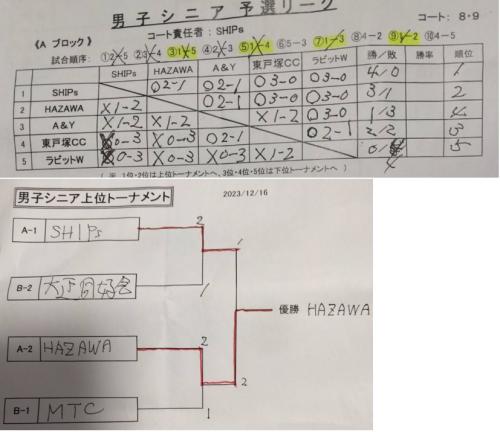 男子シニア予選リーグ
コート責任者：SHIPs
コート：8・9
《A ブロック》
試合順序： ①2-5 ②3-4 ③1-5 ④2-3 ⑤1-4 ⑥5-3 ⑦1-3 ⑧4-2 ⑨1-2 ⑩4-5
SHIPs HAZAWA A&Y 東戸塚CC ラビットW 勝/敗 勝率 順位
1 SHIPs O2-1 O2-1 O3-0 O3-0 4/0 1
2 HAZAWA X1-2 O2-1 O3-0 O3-0 3/1 2
3 A&Y X1-2 X1-2 X1-2 O3-0 1/3 4
4 東戸塚CC 0-3 X0-3 O2-1 O2-1 2/2 3
5 ラビットW 0-3 X0-3 X0-3 X1-2 0/4 5
(※ 1位・2位は上位トーナメントへ、3位・4位・5位は下位トーナメントへ )
男子シニア上位トーナメント
2023/12/16
A-1 SHIPs 2
1
B-2 大正同好会 1
優勝 HAZAWA
A-2 HAZAWA 2
2
B-1 MTC 1